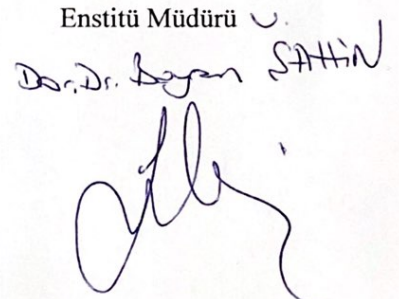 Enstitü Müdürü V.
Doç. Dr. ŞAHİN